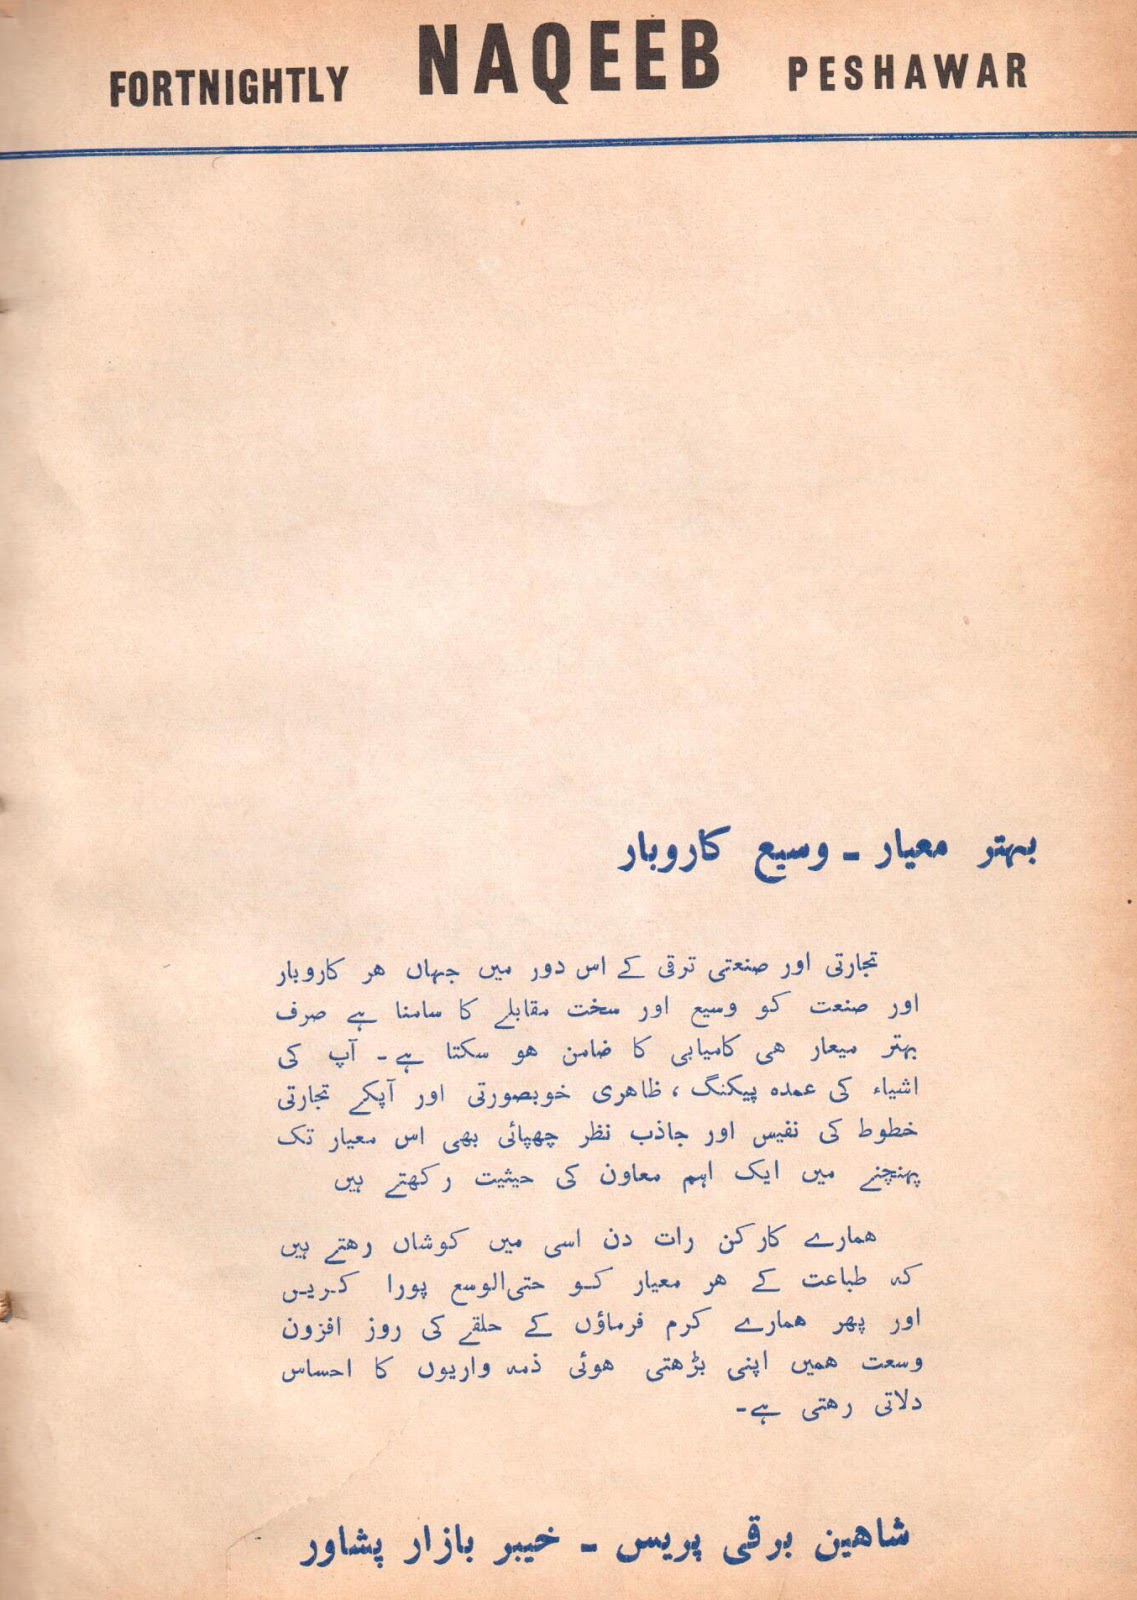 FORTNIGHTLY NAQEEB PESHAWAR
بہتر معیار ۔ وسیع کاروبار
تجارتی اور صنعتی ترقی کے اس دور میں جہاں ھر کاروبار
اور صنعت کو وسیع اور سخت مقابلے کا سامنا ہے صرف
بہتر میعار ھی کامیابی کا ضامن ھو سکتا ہے۔ آپ کی
اشیاء کی عمدہ پیکنگ ، ظاھری خوبصورتی اور آپکے تجارتی
خطوط کی نفیس اور جاذب نظر چھپائی بھی اس معیار تک
پہنچنے میں ایک اہم معاون کی حیثیت رکھتے ہیں
ھمارے کارکن رات دن اسی میں کوشاں رھتے ہیں
کہ طباعت کے ھر معیار کو حتی‌الوسع پورا کریں
اور پھر ھمارے کرم فرماؤں کے حلقے کی روز افزون
وسعت ھمیں اپنی بڑھتی ھوئی ذمہ واریوں کا احساس
دلاتی رھتی ہے۔
شاھین برقی پریس ۔ خیبر بازار پشاور